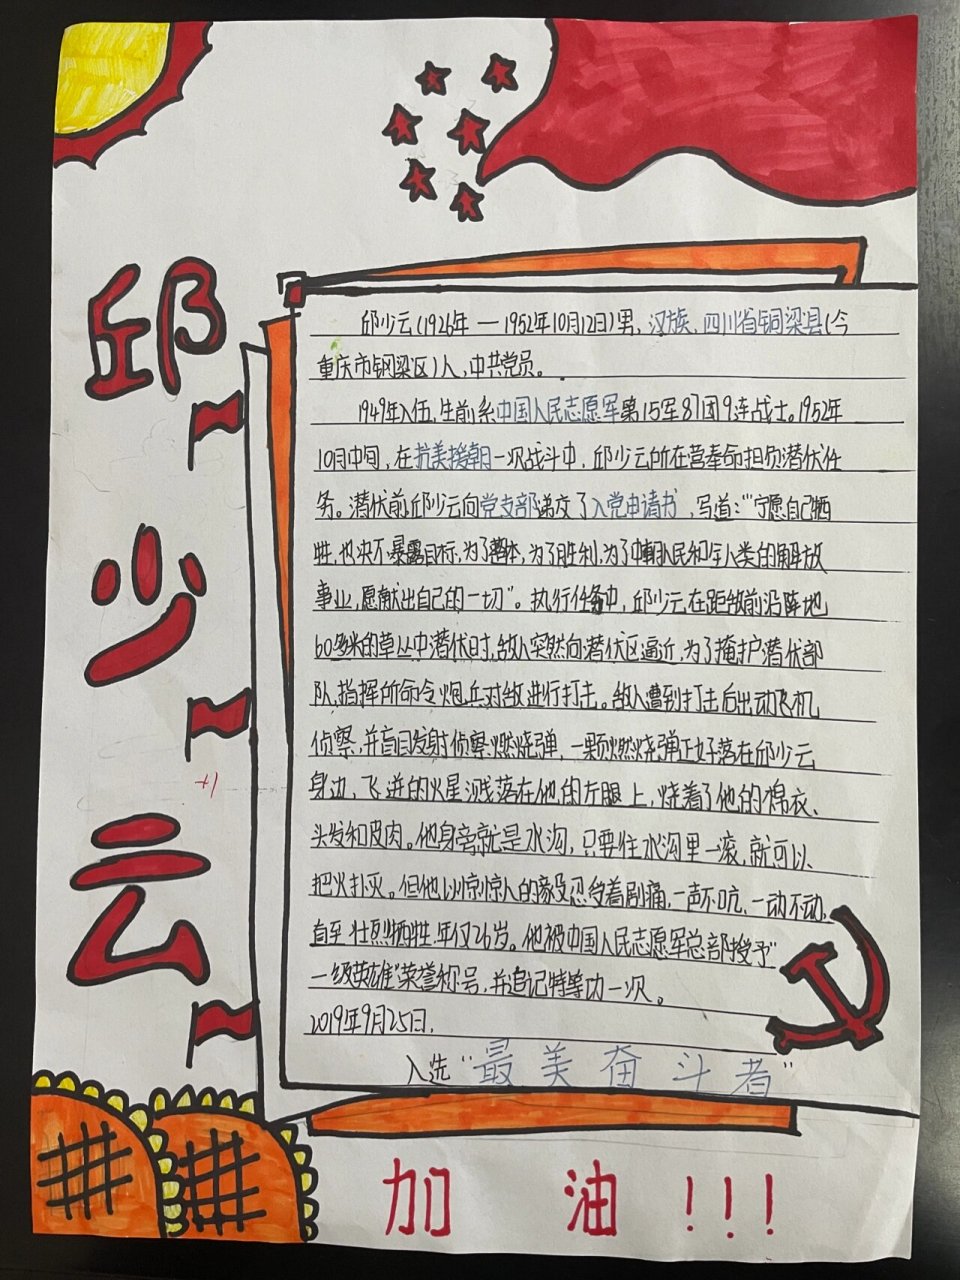 邱少云
+1
邱少云(1926年—1952年10月12日)男,汉族,四川省铜梁县(今
重庆市铜梁区)人,中共党员。
1949年入伍,生前系中国人民志愿军第15军87团9连战士。1952年
10月中旬,在抗美援朝一次战斗中,邱少云所在营奉命担负潜伏任
务。潜伏前邱少云向党支部递交了入党申请书,写道:"宁愿自己牺
牲,也决不暴露目标,为了整体,为了胜利,为了中朝人民和全人类的解放
事业,愿献出自己的一切"。执行任务中,邱少云在距敌前沿阵地
60多米的草丛中潜伏时,敌人突然向潜伏区逼近,为了掩护潜伏部
队,指挥所命令炮兵对敌进行打击。敌人遭到打击后出动飞机
侦察,并盲目发射侦察燃烧弹,一颗燃烧弹正好落在邱少云
身边,飞进的火星溅落在他的左腿上,烧着了他的棉衣、
头发和皮肉。他身旁就是水沟,只要往水沟里一滚,就可以
把火扑灭。但他以惊惊人的毅忍受着剧痛,一声不吭、一动不动,
直至壮烈牺牲,年仅26岁。他被中国人民志愿军总部授予"
一级英雄"荣誉称号,并追记特等功一次。
2019年9月25日,
入选"最美奋斗者"
加油!!!